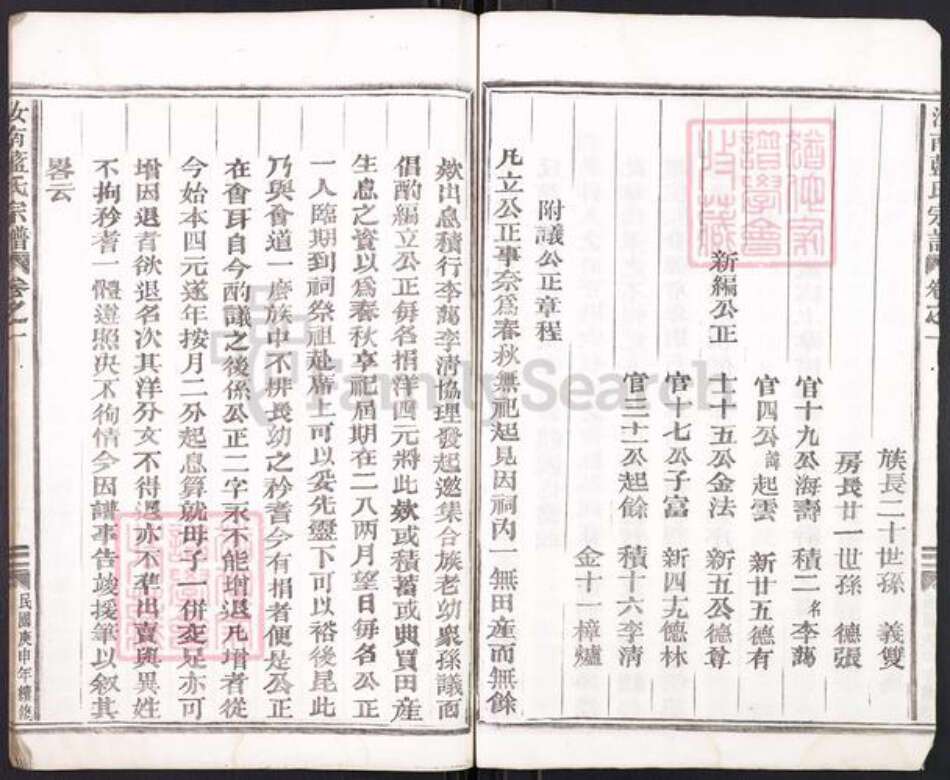 族長二十世孫　義雙
房長廿一世孫　德張
官十九公海壽　積二名李藹
官四公諱起雲　新廿五德有
新編公正
十十五公金法　新五公德尊
官十七公子富　新四九德林
官三十一公起餘　積十六李清
金十一樟爐
附議公正章程
凡立公正事奈爲春秋無祀起見因祠內一無田產而無餘
欵出息積行李藹李淸協理發起邀集合族老幼衆孫議而
倡酌編立公正每名捐洋四元將此欵或積蓄或典買田產
生息之資以爲春秋享祀屆期在二八兩月望日每名公正
一人臨期到祠祭祖赴席上可以妥先靈下可以裕後昆此
乃與會道一齊族中不排長幼之矜耆今有捐者便是公正
在會耳自今酌議之後係公正二字永不能增退凡增者從
今始本四元遂年按月二分起息算就母子一併交足亦可
增因退者欲退名次其洋分文不得退亦不準出賣與異姓
不拘矜耆一體遵照决不徇情今因譜事告竣援筆以叙其
畧云
汝南藍氏宗譜　卷之一
民國庚申年續修
FamilySearch